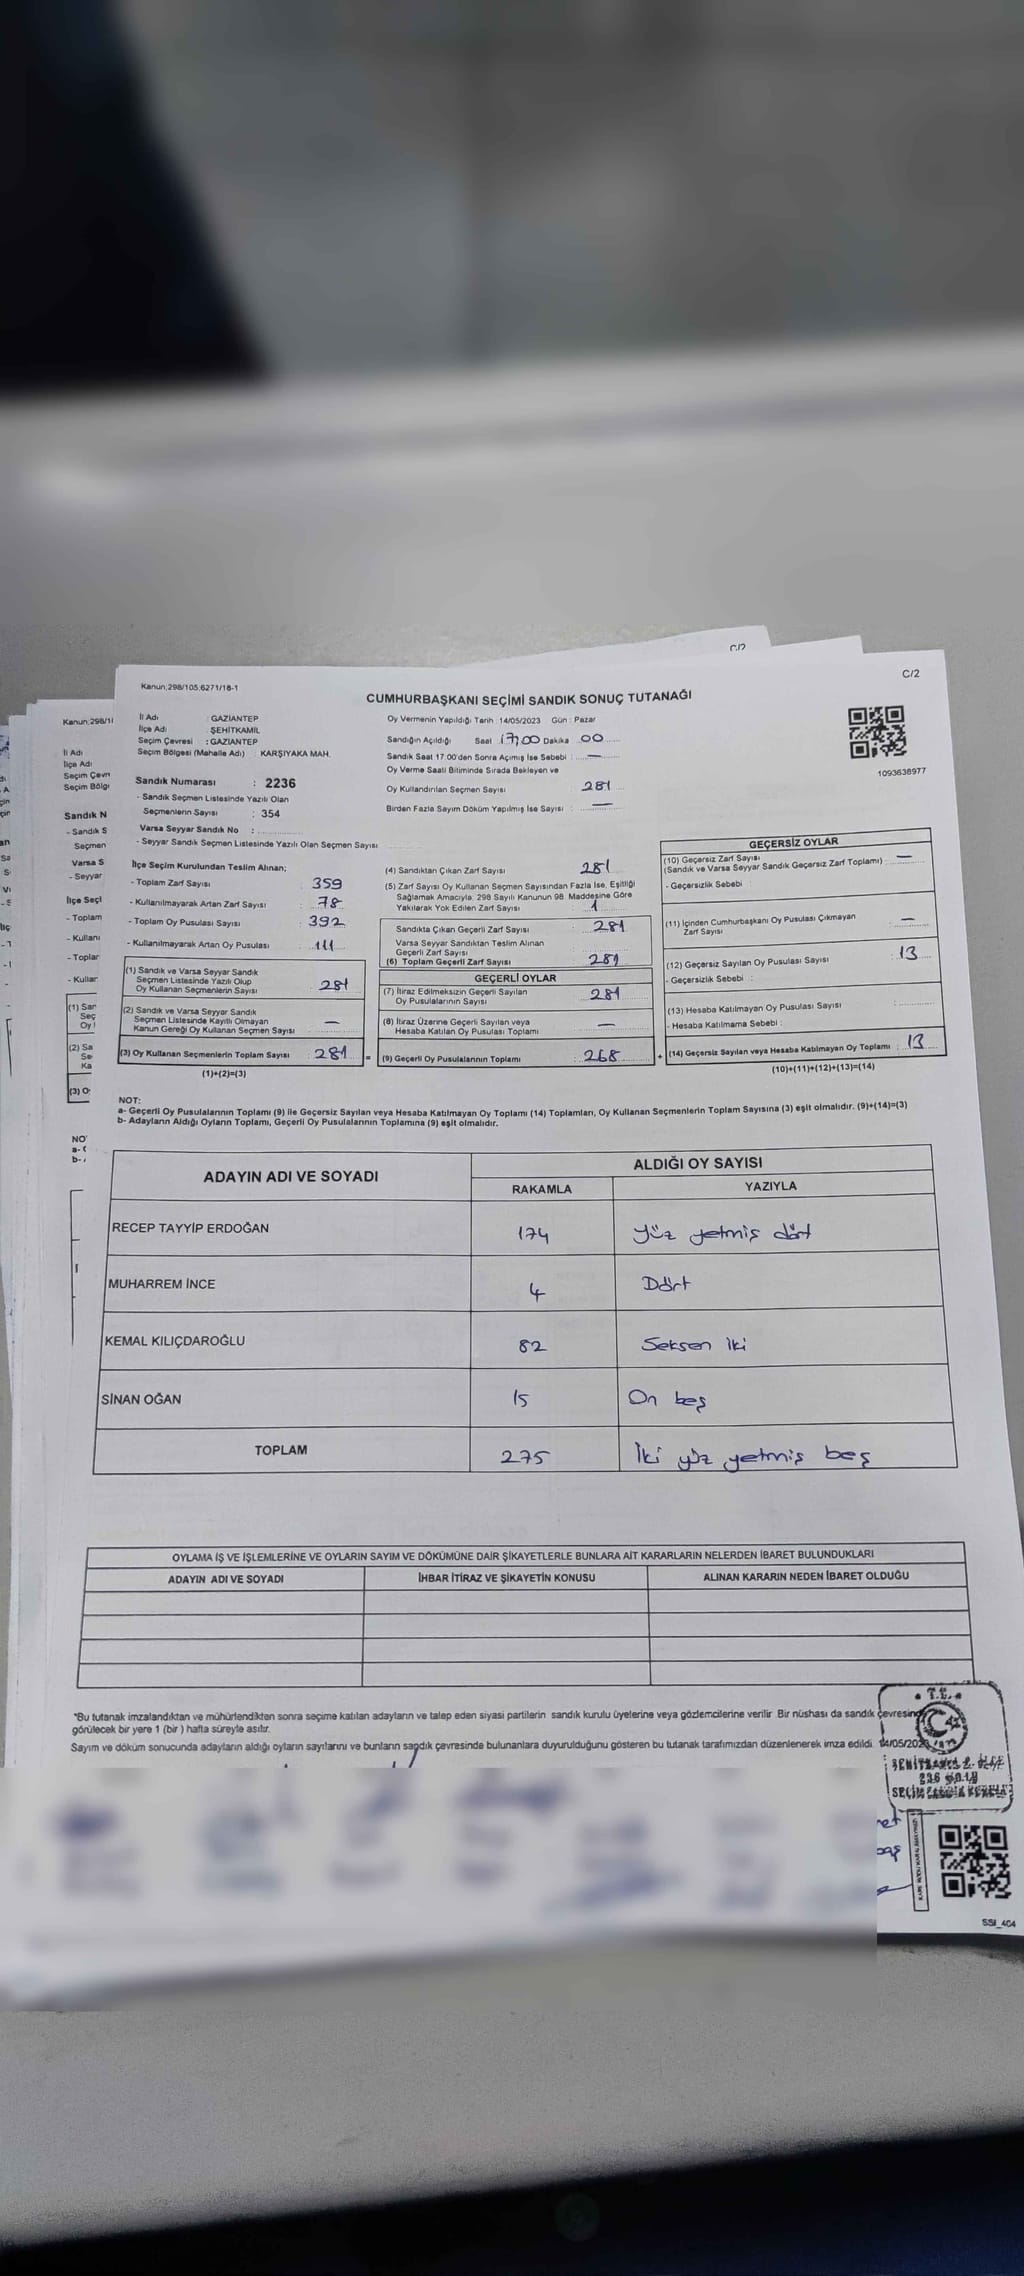 C/2
C/2
Kanun;298/105;6271/18-1
CUMHURBAŞKANI SEÇİMİ SANDIK SONUÇ TUTANAĞI
İl Adı : GAZİANTEP
İlçe Adı : ŞEHİTKAMİL
Seçim Çevresi : GAZİANTEP
Seçim Bölgesi (Mahalle Adı) : KARŞIYAKA MAH.
Sandık Numarası : 2236
- Sandık Seçmen Listesinde Yazılı Olan
Seçmenlerin Sayısı : 354
Varsa Seyyar Sandık No :
- Seyyar Sandık Seçmen Listesinde Yazılı Olan Seçmen Sayısı
Oy Vermenin Yapıldığı Tarih : 14/05/2023 Gün : Pazar
Sandığın Açıldığı Saat 17,00 Dakika 00
Sandık Saat 17:00'den Sonra Açılmış İse Sebebi : —
Oy Verme Saati Bitiminde Sırada Bekleyen ve
Oy Kullandırılan Seçmen Sayısı : 281
Birden Fazla Sayım Döküm Yapılmış İse Sayısı : —
1093638977
İlçe Seçim Kurulundan Teslim Alınan;
- Toplam Zarf Sayısı : 359
- Kullanılmayarak Artan Zarf Sayısı : 78
- Toplam Oy Pusulası Sayısı : 392
- Kullanılmayarak Artan Oy Pusulası : 111
(1) Sandık ve Varsa Seyyar Sandık
Seçmen Listesinde Yazılı Olup
Oy Kullanan Seçmenlerin Sayısı : 281
(2) Sandık ve Varsa Seyyar Sandık
Seçmen Listesinde Kayıtlı Olmayan
Kanun Gereği Oy Kullanan Seçmen Sayısı : —
(3) Oy Kullanan Seçmenlerin Toplam Sayısı : 281 =
(1)+(2)=(3)
(4) Sandıktan Çıkan Zarf Sayısı : 281
(5) Zarf Sayısı Oy Kullanan Seçmen Sayısından Fazla İse, Eşitliği
Sağlamak Amacıyla, 298 Sayılı Kanunun 98. Maddesine Göre
Yakılarak Yok Edilen Zarf Sayısı : 1
Sandıkta Çıkan Geçerli Zarf Sayısı : 281
Varsa Seyyar Sandıktan Teslim Alınan
Geçerli Zarf Sayısı
(6) Toplam Geçerli Zarf Sayısı : 281
GEÇERLİ OYLAR
(7) İtiraz Edilmeksizin Geçerli Sayılan
Oy Pusulalarının Sayısı : 281
(8) İtiraz Üzerine Geçerli Sayılan veya
Hesaba Katılan Oy Pusulası Toplamı : —
(9) Geçerli Oy Pusulalarının Toplamı : 268 +
GEÇERSİZ OYLAR
(10) Geçersiz Zarf Sayısı
(Sandık ve Varsa Seyyar Sandık Geçersiz Zarf Toplamı) : —
- Geçersizlik Sebebi :
(11) İçinden Cumhurbaşkanı Oy Pusulası Çıkmayan
Zarf Sayısı : —
(12) Geçersiz Sayılan Oy Pusulası Sayısı : 13
- Geçersizlik Sebebi :
(13) Hesaba Katılmayan Oy Pusulası Sayısı :
- Hesaba Katılmama Sebebi :
(14) Geçersiz Sayılan veya Hesaba Katılmayan Oy Toplamı : 13
(10)+(11)+(12)+(13)=(14)
NOT:
a- Geçerli Oy Pusulalarının Toplamı (9) ile Geçersiz Sayılan veya Hesaba Katılmayan Oy Toplamı (14) Toplamları, Oy Kullanan Seçmenlerin Toplam Sayısına (3) eşit olmalıdır. (9)+(14)=(3)
b- Adayların Aldığı Oyların Toplamı, Geçerli Oy Pusulalarının Toplamına (9) eşit olmalıdır.
ADAYIN ADI VE SOYADI
ALDIĞI OY SAYISI
RAKAMLA YAZIYLA
RECEP TAYYİP ERDOĞAN 174 Yüz yetmiş dört
MUHARREM İNCE 4 Dört
KEMAL KILIÇDAROĞLU 82 Seksen iki
SİNAN OĞAN 15 On beş
TOPLAM 275 İki yüz yetmiş beş
OYLAMA İŞ VE İŞLEMLERİNE VE OYLARIN SAYIM VE DÖKÜMÜNE DAİR ŞİKAYETLERLE BUNLARA AİT KARARLARIN NELERDEN İBARET BULUNDUKLARI
ADAYIN ADI VE SOYADI İHBAR İTİRAZ VE ŞİKAYETİN KONUSU ALINAN KARARIN NEDEN İBARET OLDUĞU
*Bu tutanak imzalandıktan ve mühürlendikten sonra seçime katılan adayların ve talep eden siyasi partilerin sandık kurulu üyelerine veya gözlemcilerine verilir. Bir nüshası da sandık çevresinde
görülecek bir yere 1 (bir) hafta süreyle asılır.
Sayım ve döküm sonucunda adayların aldığı oyların sayılarını ve bunların sandık çevresinde bulunanlara duyurulduğunu gösteren bu tutanak tarafımızdan düzenlenerek imza edildi. 14/05/2023
T.C.
SSI_404
Kanun;298/1
İl Adı
İlçe Adı
Seçim Çevr
Seçim Bölg
Sandık N
- Sandık S
Seçmen
Varsa S
- Seyyar
İlçe Seçi
- Toplam
- Kullanı
- Toplar
- Kullar
(1) Sar
Seç
Oy
(2) Sa
Se
Ka
(3) O